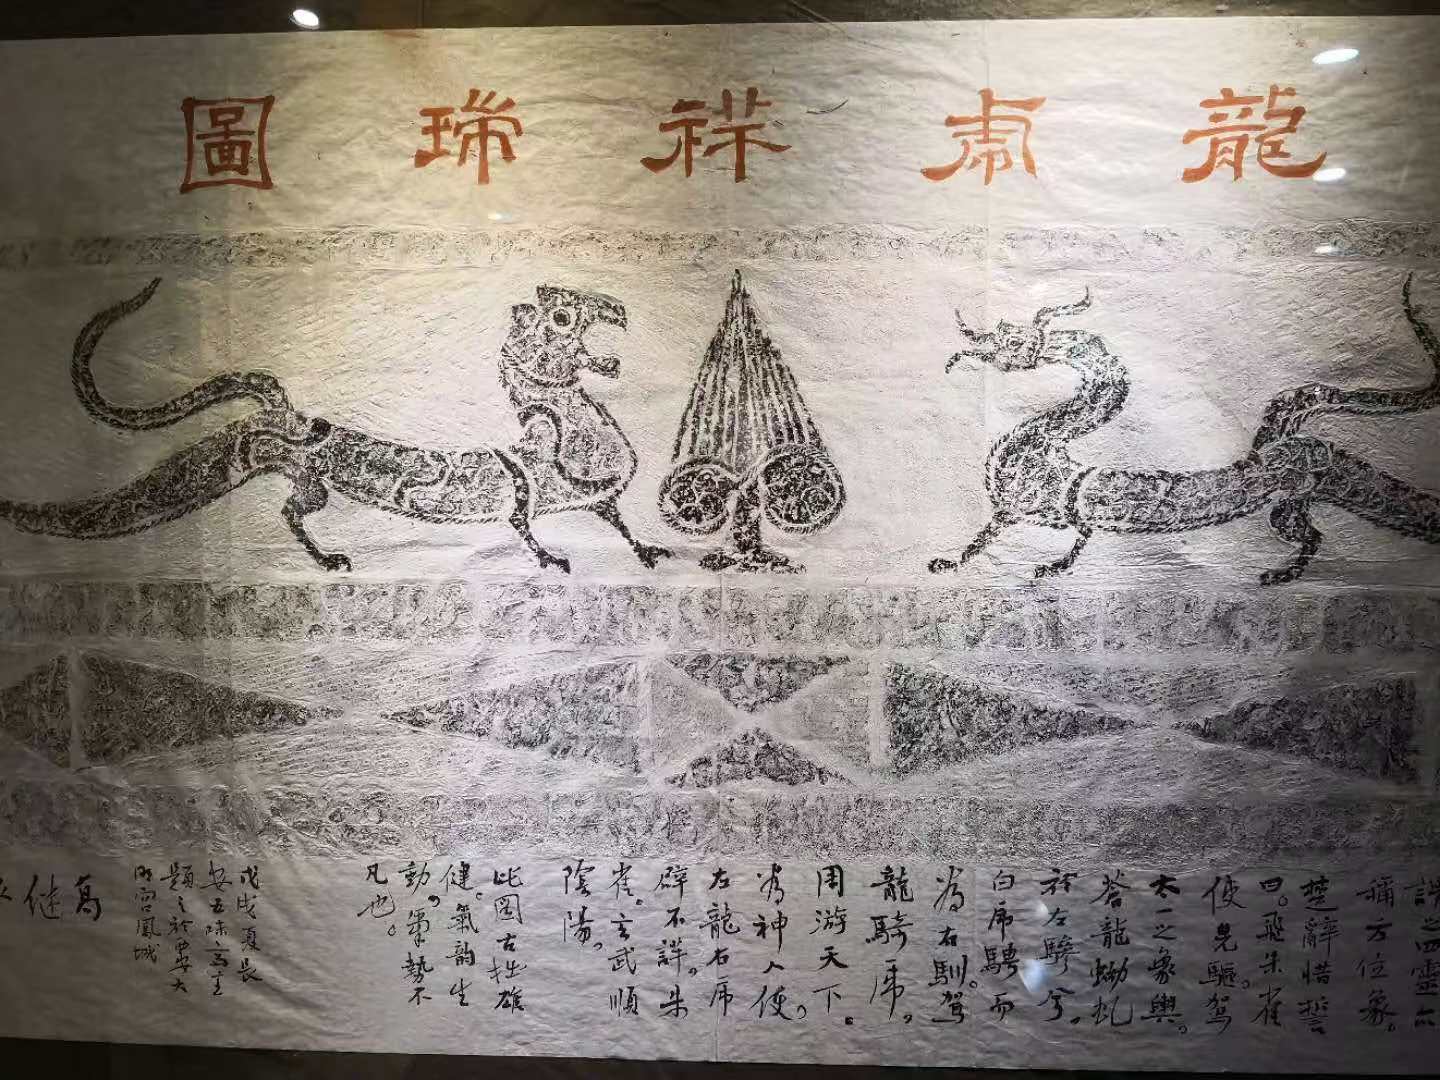 龍虎祥瑞圖
之四靈亦
稱方位象。
楚辭惜誓
曰。飛朱雀
使先驅。駕
太一之象輿。
蒼龍蚴虬
於左驂兮。
白虎騁而
為右騑。駕
龍騎虎。
周游天下。
為神人使。
左龍右虎
辟不詳。朱
雀。玄武順
陰陽。
此圖古拙雄
健。氣韵生
動。氣勢不
凡也。
戊戌夏長
安五味齋主
題之於西安大
明宮鳳城
葛继